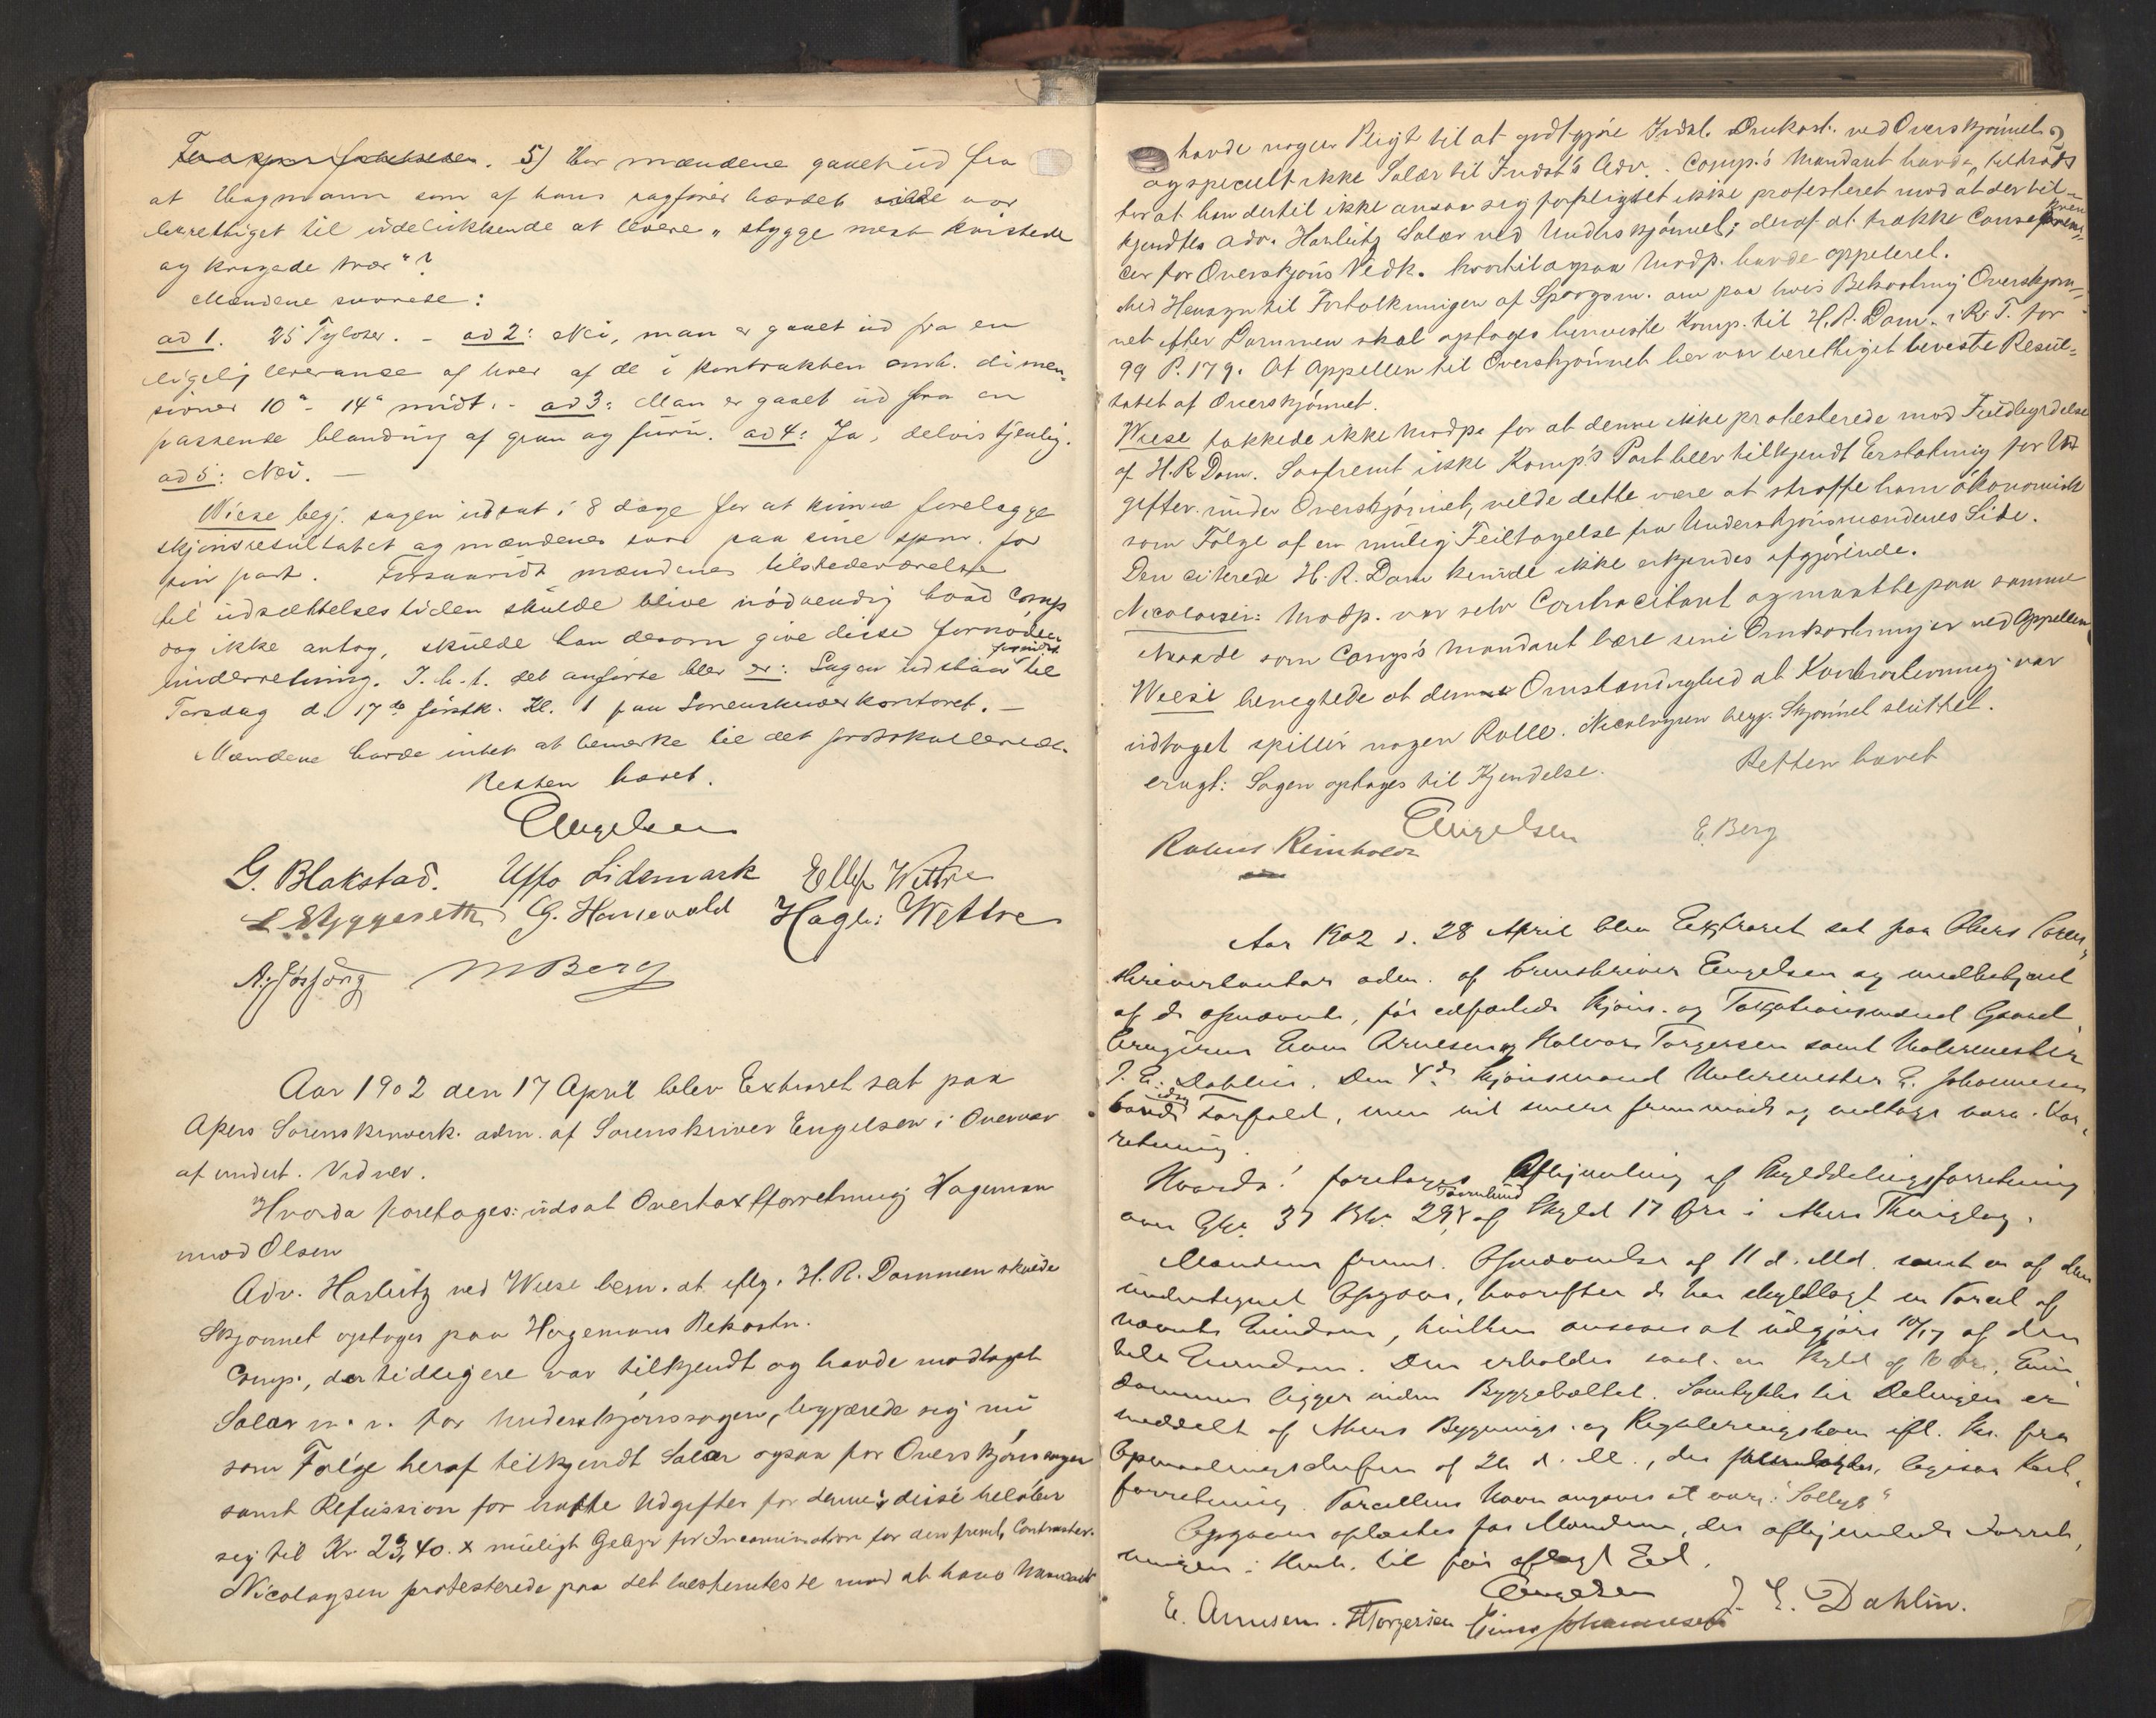 5) Har mændene gaaet ud fra
at Hagmann som af hans sagfører hævdet var
berettiget til udelukkende at levere „stygge mest kvistede
og krogede trær"?
Mændene svarede:
ad 1. 25 Tylvter. - ad 2: Nei, man er gaaet ud fra en
ligelig leverance af hver af de i kontrakten omh. dimen-
sioner 10" - 14" midt. - ad 3: Man er gaaet ud fra en
passende blanding af gran og furu. ad 4: Ja, delvis tjenlig.
ad 5: Nei. —
Wiese begj. sagen udsat i 8 dage for at kunne forelægge
skjønsresultatet og mændenes svar paa sine spm. for
sin part. Forsaavidt mændenes tilstedeværelse
til udsættelsestiden skulde blive nødvendig hvad Comp
dog ikke antog, skulde han derom give disse fornøden
underretning. I. h. t. det anførte blev er: Sagen udstaar til
Torsdag d. 17de førstk. Kl. 1 paa Sorenskriverkontoret. —
Mændene havde intet at bemærke til det protokollerede.
Retten hævet.
Engelsen
G. Blakstad. Uffo Lidemark Ellef Wettre
L Styggeseth G. Hanevold Hagb: Wettre
M Berg
Aar 1902 den 17 April blev Extraret sat paa
Akers Sorenskriverk. adm. af Sorenskriver Engelsen i Overvær
af undert. Vidner.
Hvorda foretoges: udsat Overtaxtforretning Hageman
mod Olsen
Adv. Harbitz ved Wiese bem. at eflg. H. R. Dommen skulde
Skjønnet optages paa Hagemans Bekostn.
Comp., der tidligere var tilkjendt og havde modtaget
Salær m. v. for Underskjønssagen, begjærede sig nu
som Følge heraf tilkjendt Salær ogsaa for Overskjønssagen
samt Refusion for havte Udgifter for denne; disse beløber
sig til Kr 23,40. x muligt Gebyr for Incamination for den fremh. Contraster.
Nicolaysen protesterede paa det bestemteste mod at hans Mandant
havde nogen Pligt til at godtgjøre Indst. Omkost. ved Overskjønnet
og specielt ikke Salær til Indst's Adv. Comp.'s Mandant havde, tiltrods
for at han dertil ikke ansaa sig forpligtet ikke protesteret mod at der til-
kjendtes Adv. Harbitz Salær ved Underskjønnet; deraf at trække Conseqven-
cer for Overskjøns Vedk. hvortil ogsaa Modp. havde appelleret.
Med Hensyn til Fortolkningen af Spørgsm. om paa hvis Bekostning Overskjøn-
net efter Dommen skal optages henviste Komp. til H. R. Dom. i R. T. for
99 P. 179. At Appellen til Overskjønnet her var berettiget beviste Resul-
tatet af Overskjønnet.
Wiese takkede ikke Modp. for at denne ikke protesterede mod Fuldbyrdelse
af H.R Dom. Saafremt ikke Komp's Part blev tilkjendt Erstatning for Ud-
gifter under Overskjønnet, vilde dette være at straffe ham økonomisk
som Følge af en mulig Feiltagelse fra Underskjønsmændenes Side.
Den citerede H. R. Dom kunde ikke erkjendes afgjørende.
Nicolaysen: Modp. var selv Contracitant og maatte paa samme
Maade som Comp's Mandant bære sine Omkostninger ved Appellen
Wiese benegtede at denne Omstændighed at Kontrastevning var
udtaget spiller nogen Rolle. Nicolaysen begj. Skjønnet sluttet.
eragt: Sagen optages til Kjendelse. Retten hævet
Engelsen E. Berg
Aar 1902 d. 28 April blev Extraret sat paa Akers Soren-
skriverkontor adm. af Sorenskriver Engelsen og medbetjent
af de opnævnte, før edfæstede Skjøns- og Taxationsmænd Gaard-
brugerne Even Arnesen og Halvor Torgersen samt Malermester
J. E. Dahlin. Den 4de Skjønsmand Murermester E. Johannesen
havde idag Forfald, men vil senere fremmøde og vedtage nærv. For-
retning.
Hvorda! foretoges Afhjemling af Skylddelingsforretning
over Gno. 37 Bno. 29, Tørnlund af Skyld 17 Øre i Akers Thinglag.
Mændene freml. Opnævnelse af 11 d. Md. samt en af dem
undertegnet Opgave, hvorefter de har skyldlagt en Parcel af
nævnte Eiendom, hvilken ansaaes at udgjøre 10/17 af den
hele Eiendom. Den erholder saal. en Skyld af 10 Øre. Eien-
dommen ligger inden Byggebæltet. Samtykke til Delingen er
meddelt af Akers Bygnings- og Reguleringskom. ifl. Skr. fra
Opmaalingschefen af 26 d. M., der fremlagdes, ligesaa Kart-
forretning. Parcellens Navn angaves at være: "Solbygg"
Opgaven oplæstes for Mændene, der afhjemlede Forret-
ningen i Henh. til før aflagt Ed.
Engelsen
E. Arnesen. H Torgersen Einar Johannesen J. E. Dahlin.